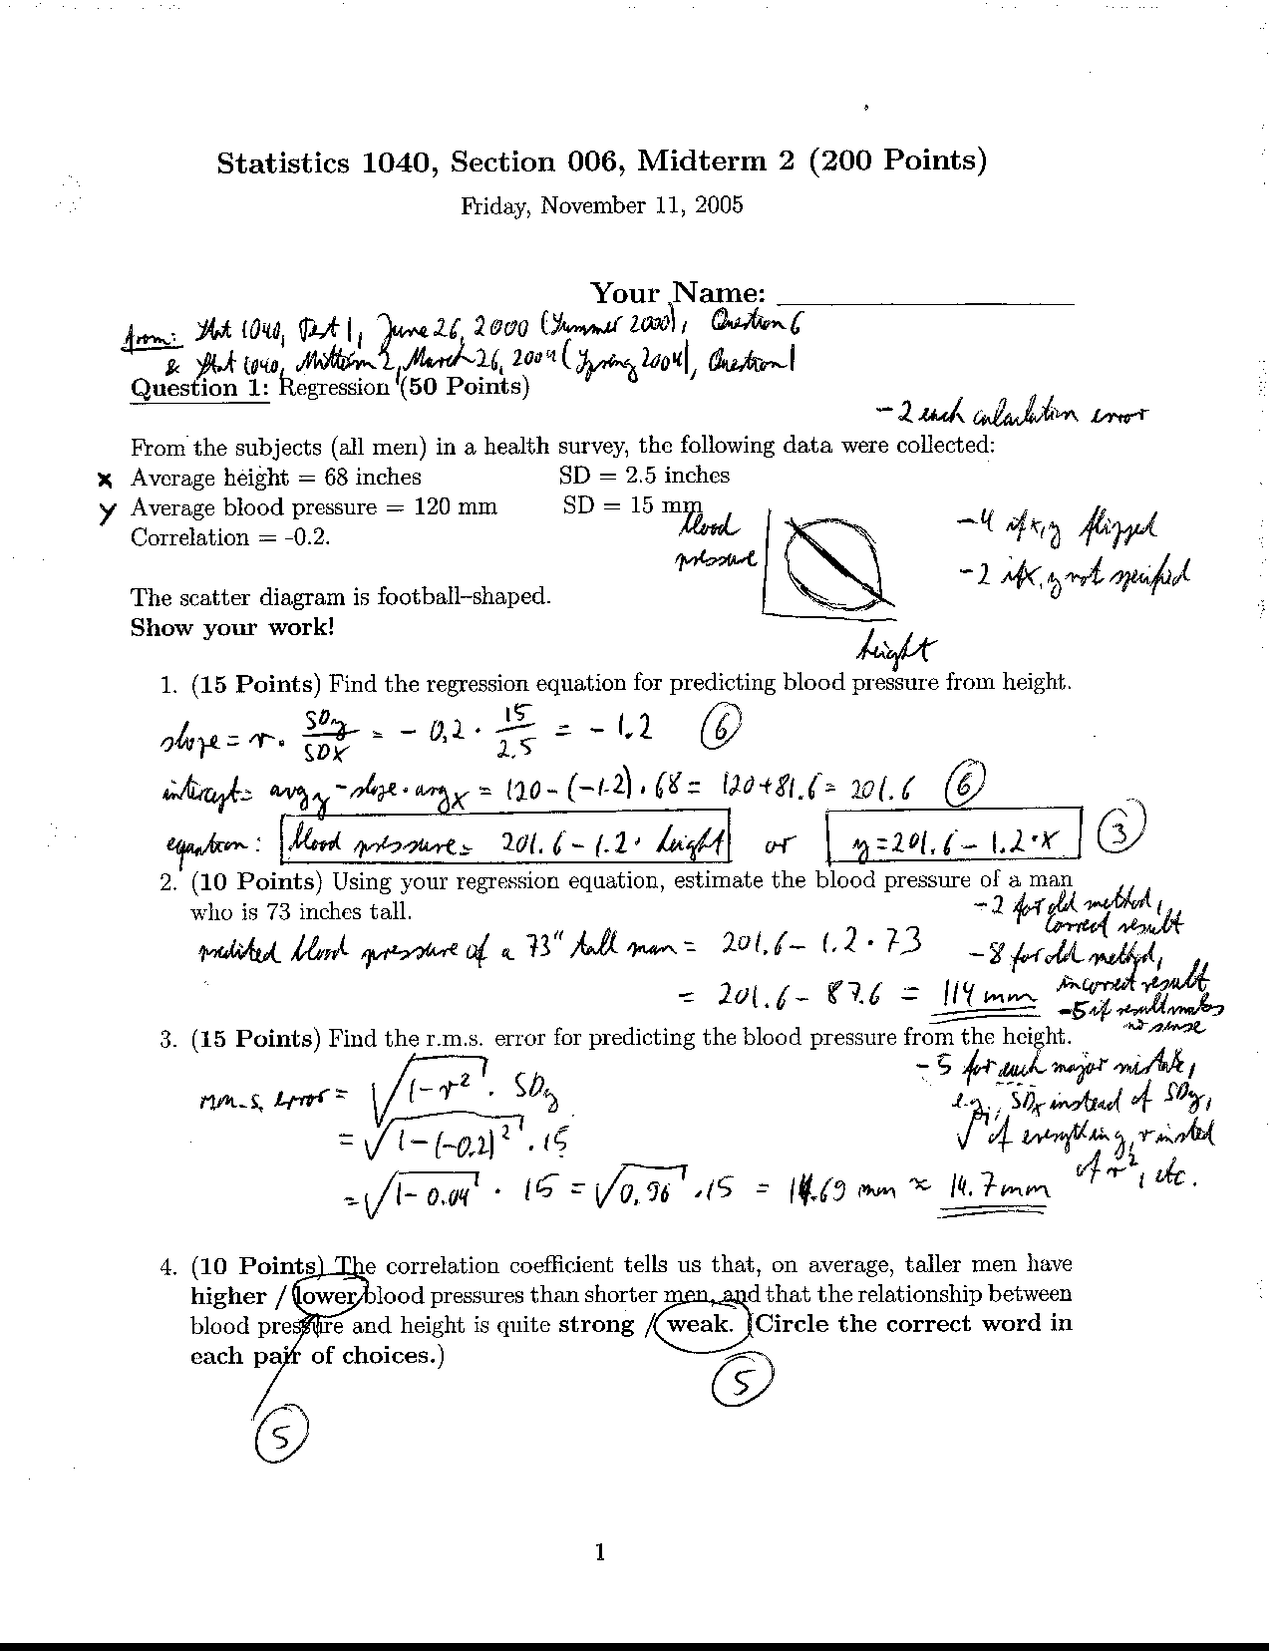 Statistics 1040, Section 006, Midterm 2 (200 Points)
Friday, November 11, 2005
Your Name:
from: Stat 1040, Test 1, June 26, 2000 (Summer 2000), Question 6
& Stat 1040, Midterm 2, March 26, 2004 (Spring 2004), Question 1
Question 1: Regression (50 Points)
-2 each calculation error
From the subjects (all men) in a health survey, the following data were collected:
x Average height = 68 inches SD = 2.5 inches
y Average blood pressure = 120 mm SD = 15 mm
Correlation = -0.2.
blood
pressure
height
-4 if x, y flipped
-2 if x, y not specified
The scatter diagram is football–shaped.
Show your work!
1. (15 Points) Find the regression equation for predicting blood pressure from height.
slope = r · SDy/SDx = -0.2 · 15/2.5 = -1.2 (6)
intercept = avg y - slope · avg x = 120 - (-1.2) · 68 = 120 + 81.6 = 201.6 (6)
equation: blood pressure = 201.6 - 1.2 · height or y = 201.6 - 1.2 · x (3)
2. (10 Points) Using your regression equation, estimate the blood pressure of a man
who is 73 inches tall.
-2 for old method,
correct result
predicted blood pressure of a 73" tall man = 201.6 - 1.2 · 73
-8 for old method,
incorrect result
= 201.6 - 87.6 = 114 mm
-5 if result makes
no sense
3. (15 Points) Find the r.m.s. error for predicting the blood pressure from the height.
-5 for each major mistake,
e.g., SDx instead of SDy,
√ of everything, r instead
of r², etc.
r.m.s. error = √(1-r²) · SDy
= √(1-(-0.2)²) · 15
= √(1-0.04) · 15 = √0.96 · 15 = 14.69 mm ≈ 14.7 mm
4. (10 Points) The correlation coefficient tells us that, on average, taller men have
higher / lower blood pressures than shorter men, and that the relationship between
blood pressure and height is quite strong / weak. (Circle the correct word in
each pair of choices.)
5
5
1